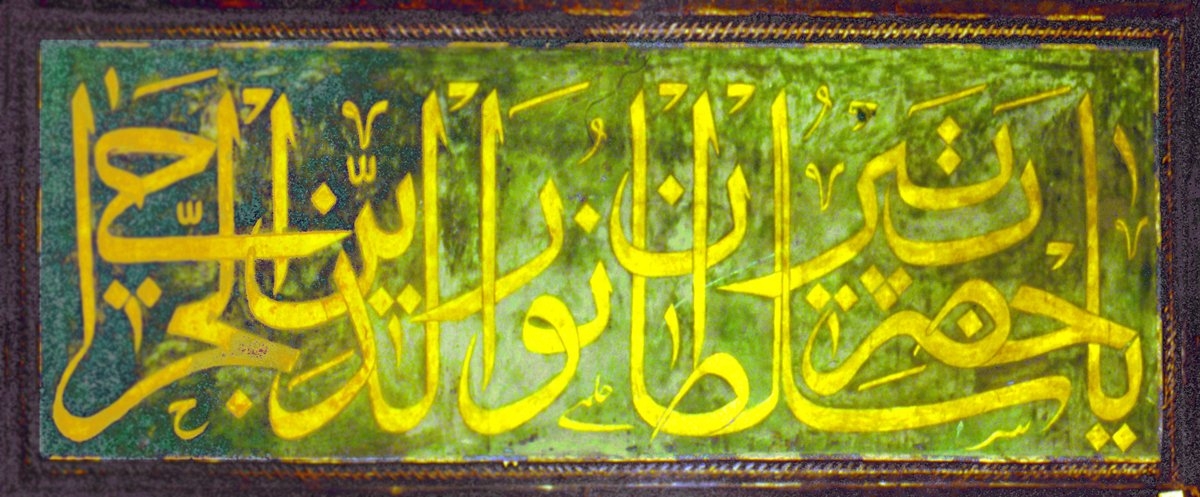 يا حضرت پير سلطان نور الدين الجراحي